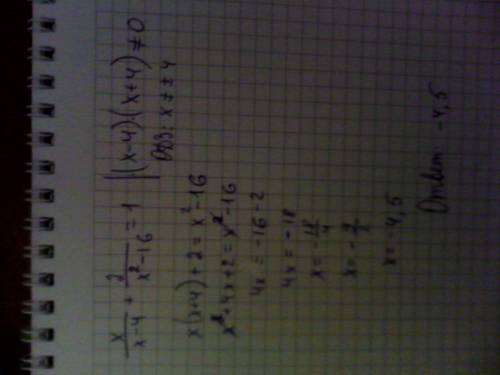 x/(x-4) + 2/(x²-16) = 1 | (x-4)·(x+4) ≠ 0
ОДЗ: x ≠ ±4
x(x+4)+2 = x²-16
x²+4x+2 = x²-16
4x = -16-2
4x = -18
x = -18/4
x = -9/2
x = -4,5
Ответ: -4,5